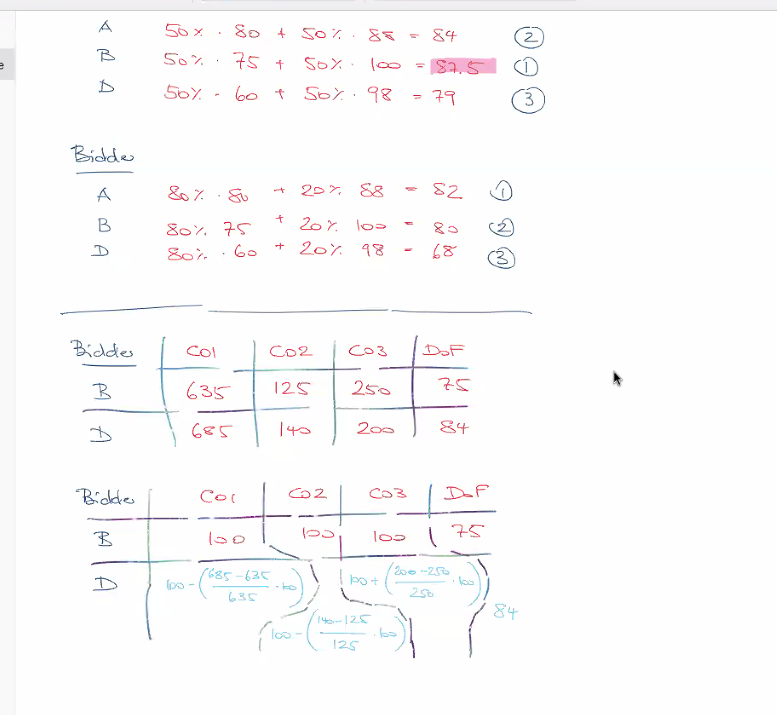 e
A 50% · 80 + 50% · 88 = 84 ②
B 50% · 75 + 50% · 100 = 87.5 ①
D 50% · 60 + 50% · 98 = 79 ③
Bidder
A 80% · 80 + 20% 88 = 82 ①
B 80% 75 + 20% 100 = 80 ②
D 80% · 60 + 20% 98 = 68 ③
Bidder CO1 CO2 CO3 DoF
B 635 125 250 75
D 685 140 200 84
Bidder CO1 CO2 CO3 DoF
B 100 100 100 75
D 100 - (685-635/635 · 100) 100 + (200-250/250 · 100)
100 - (140-125/125 · 100) 84